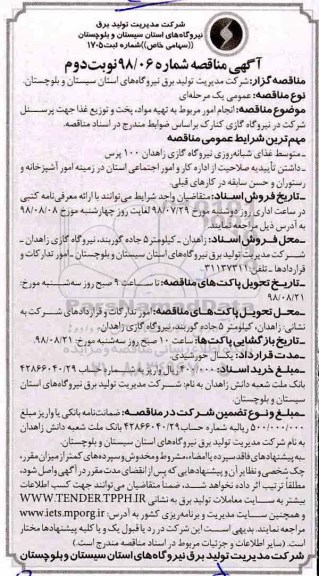 شرکت مدیریت تولید برق
نیروگاه‌های استان سیستان و بلوچستان
((سهامی خاص)) شماره ثبت ۱۷۰۵
آگهی مناقصه شماره ۹۸/۰۶ نوبت دوم
مناقصه گزار: شرکت مدیریت تولید برق نیروگاه‌های استان سیستان و بلوچستان.
نوع مناقصه: عمومی یک مرحله‌ای
موضوع مناقصه: انجام امور مربوط به تهیه مواد، پخت و توزیع غذا جهت پرسنل
شرکت در نیروگاه گازی کنارک براساس ضوابط مندرج در اسناد مناقصه.
مهم ترین شرایط عمومی مناقصه
ـ متوسط غذای شبانه‌روزی نیروگاه گازی زاهدان ۱۰۰ پرس
ـ داشتن تأییدیه صلاحیت از اداره کار و امور اجتماعی استان در زمینه امور آشپزخانه و
رستوران و حسن سابقه در کارهای قبلی.
ـ تاریخ فروش اسناد: متقاضیان واجد شرایط می‌توانند با ارائه معرفی‌نامه کتبی
در ساعات اداری روز دوشنبه مورخ ۹۸/۰۷/۲۹ لغایت روز چهارشنبه مورخ ۹۸/۰۸/۰۸
به آدرس ذیل مراجعه نمایند.
ـ محل فروش اسناد: زاهدان ـ کیلومتر ۵ جاده گوربند، نیروگاه گازی زاهدان ـ
شرکت مدیریت تولید برق نیروگاه‌های استان سیستان و بلوچستان ـ امور تدارکات و
قراردادها ـ تلفن: ۳۱۱۳۷۳۱۱
ـ تاریخ تحویل پاکت‌های مناقصه: تا ساعت ۹ صبح روز سه‌شنبه مورخ
۹۸/۰۸/۲۱
ـ محل تحویل پاکت‌های مناقصه: امور تدارکات و قراردادهای شرکت به
نشانی: زاهدان، کیلومتر ۵ جاده گوربند، نیروگاه گازی زاهدان.
ـ تاریخ بازگشایی پاکت‌ها: ساعت ۱۰ صبح روز سه‌شنبه مورخ ۹۸/۰۸/۲۱
ـ مدت قرارداد: یکسال خورشیدی.
ـ مبلغ خرید اسناد: ۴۰۰/۰۰۰ ریال واریز به شماره حساب ۴۲۸۶۶۰۴۰/۲۹
بانک ملت شعبه دانش زاهدان به نام: شرکت مدیریت تولید برق نیروگاه‌های استان
سیستان و بلوچستان.
ـ مبلغ و نوع تضمین شرکت در مناقصه: ضمانت‌نامه بانکی یا واریز مبلغ
۵۰۰/۰۰۰/۰۰۰ ریال به شماره حساب ۴۲۸۶۶۰۴۰/۲۹ بانک ملت شعبه دانش زاهدان
به نام شرکت مدیریت تولید برق نیروگاه‌های استان سیستان و بلوچستان.
ـ به پیشنهادهای فاقد سپرده یا امضاء، مشروط و مخدوش و سپرده‌های کمتر از میزان مقرر،
چک شخصی و نظایر آن و پیشنهادهایی که پس از انقضای مدت مقرر در آگهی واصل شود،
مطلقاً ترتیب اثر داده نخواهد شد، ضمناً متقاضیان می‌توانند جهت کسب اطلاعات
بیشتر به سایت معاملات تولید برق به نشانی WWW.TENDER.TPPH.IR
و همچنین سایت مدیریت و برنامه‌ریزی کشور به آدرس: www.iets.mporg.ir
مراجعه نمایند. بدیهی است این شرکت در رد یا قبول یک و یا کلیه پیشنهادها مختار
است. (سایر اطلاعات و جزئیات مربوط در اسناد مناقصه مندرج است.)
شرکت مدیریت تولید برق نیروگاه‌های استان سیستان و بلوچستان